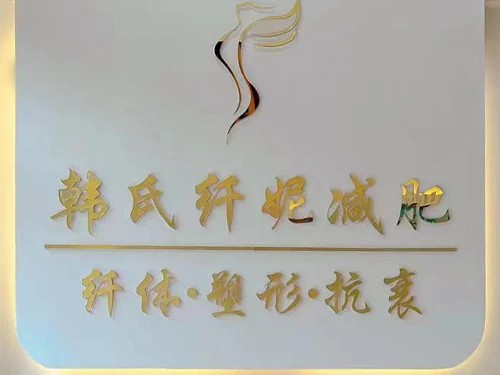 韩氏纤妮减肥
纤体·塑形·抗衰